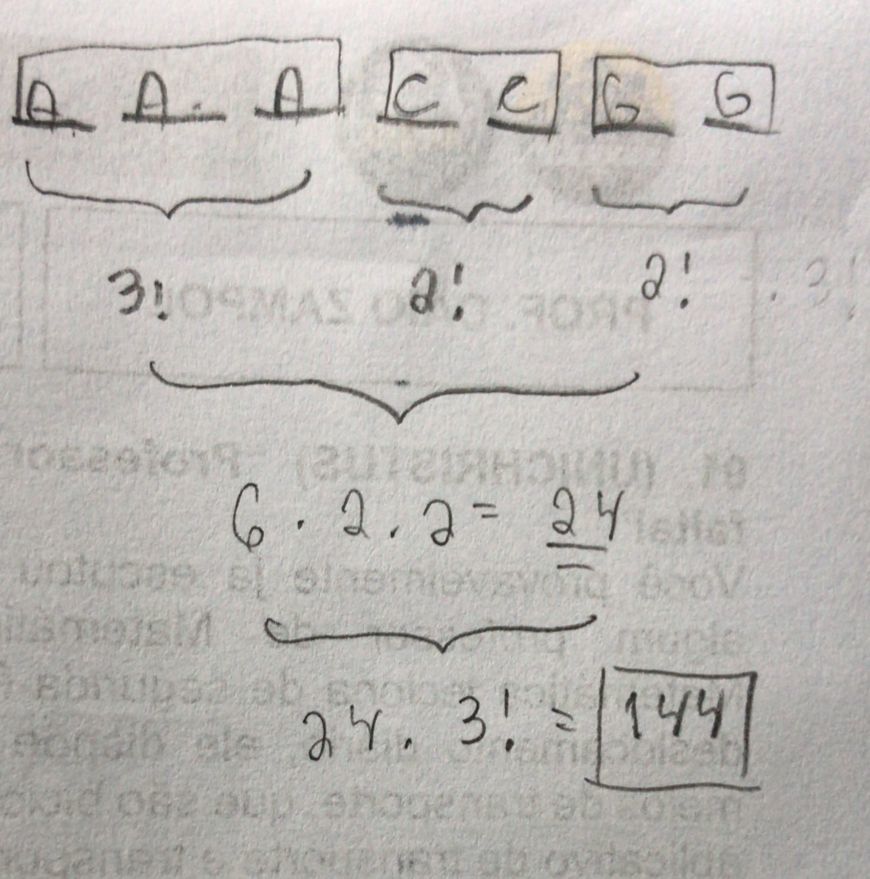 A A A C C G G
3! 2! 2! . 3!
6 . 2 . 2 = 24
24 . 3! = 144